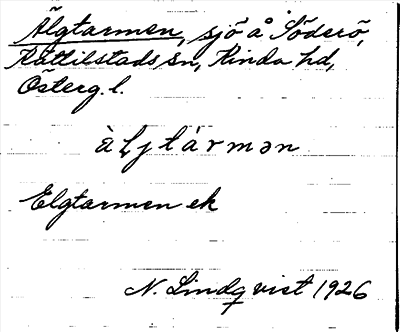 Älgtarmen, sjö å Söderö,
Kättilstads sn, Kinda hd,
Österg. l.
ὰɭjtármən
Elgtarmen ek
N. Lindqvist 1926